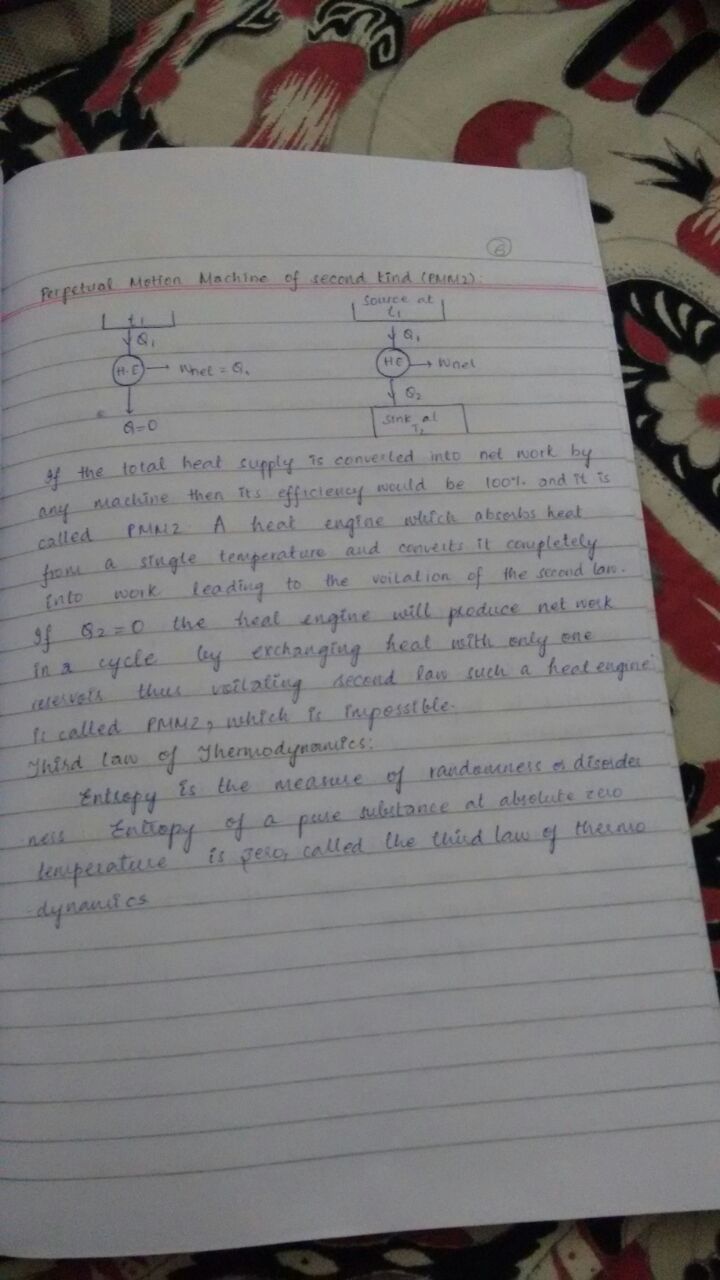 6
Perpetual Motion Machine of second kind (PMM2):
t1
Q1
H.E
Wnet = Q1
Q=0
Source at
t1
Q1
HE
Wnet
Q2
Sink at
T2
If the total heat supply is converted into net work by
any machine then its efficiency would be 100% and it is
called PMM2. A heat engine which absorbs heat
from a single temperature and converts it completely
into work leading to the voilation of the second law.
If Q2=0 the heat engine will produce net work
in a cycle by exchanging heat with only one
reservois thus voilating second law such a heat engine
is called PMM2, which is impossible.
Third law of Thermodynamics:
Entropy is the measure of randomness or disorder
ness. Entropy of a pure substance at absolute zero
temperature is zero, called the third law of thermo
-dynamics